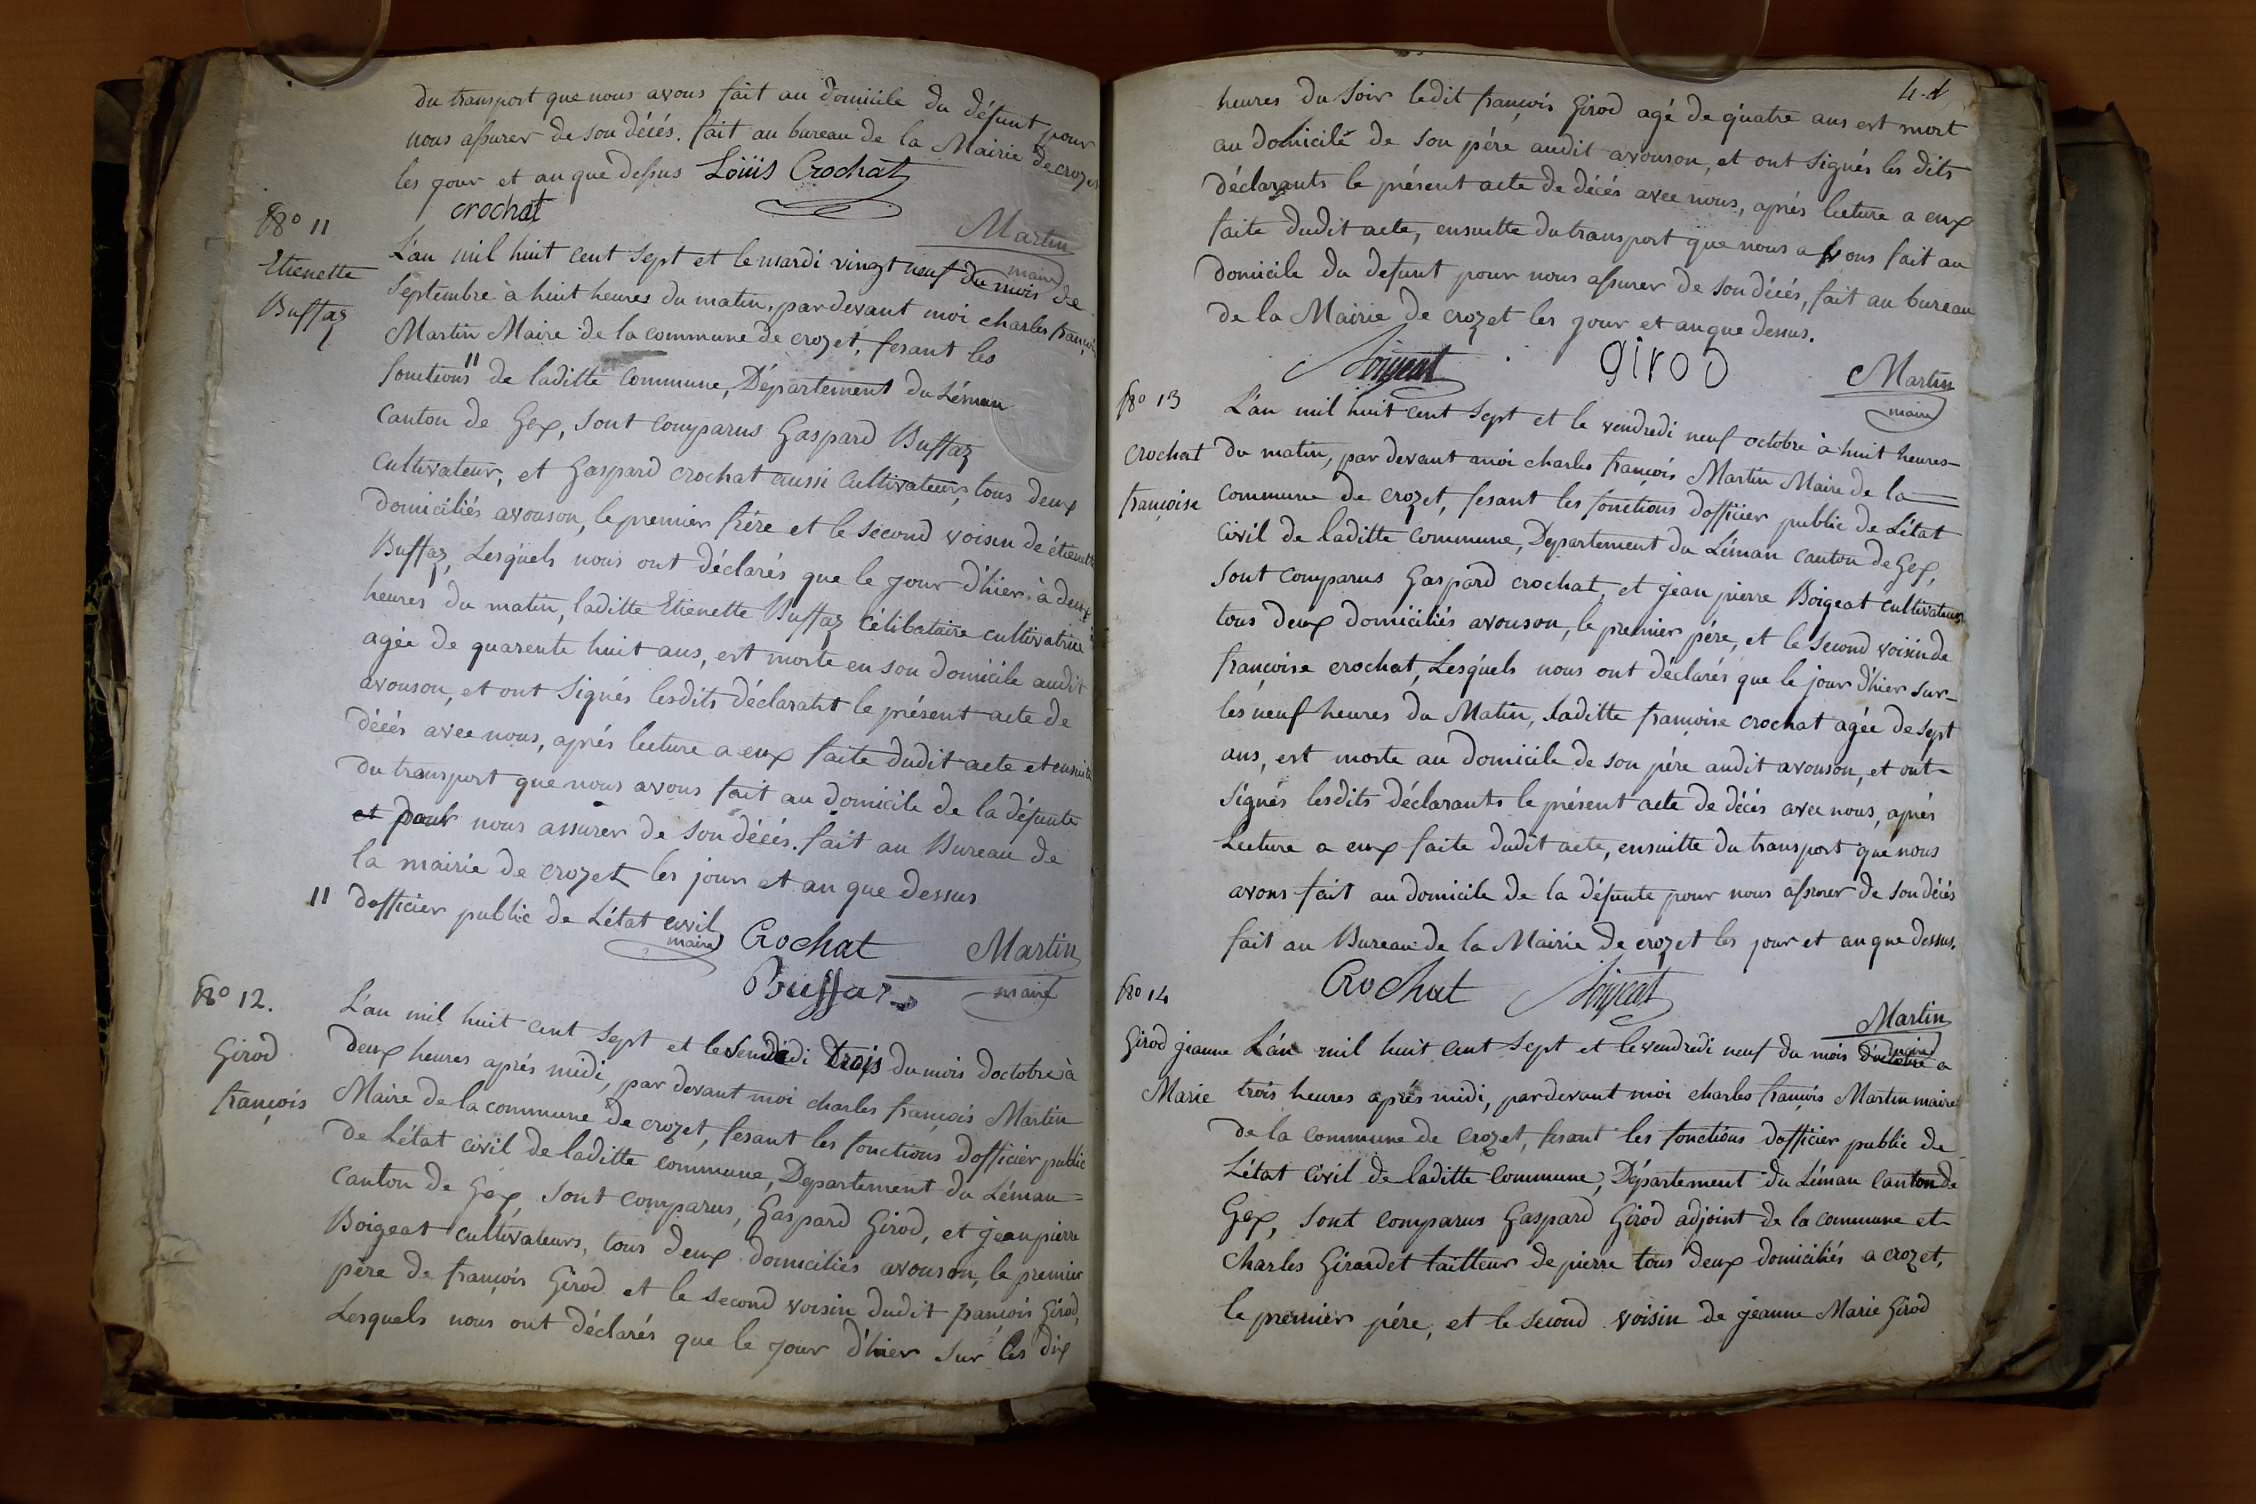 du transport que nous avons fait au domicile du défunt pour
nous assurer de son décés. fait au bureau de la Mairie de crozet
les jour et an que dessus Loüis Crochat
crochat
Martin
maire
No 11
Etienette
Buffaz
L'an mil huit cent sept et le mardi vingt neuf du mois de
Septembre à huit heures du matin, par devant moi charles françois
Martin Maire de la commune de crozet, fesant les
fonctions " de laditte Commune, Département du Léman
Canton de Gex, sont comparus Gaspard Buffaz
Cultivateur, et Gaspard crochat aussi Cultivateur, tous deux
domiciliés avouson, le premier frére et le second voisin de étienette
Buffaz, Lesquels nous ont déclarés que le jour d'hier à deux
heures du matin, laditte Etienette Buffaz célibataire cultivatrice
agée de quarente huit ans, est morte en son domicile audit
avouson, et ont signés lesdits déclarant le présent acte de
décés avec nous, aprés lecture a eux faite dudit acte et ensuite
du transport que nous avons fait au domicile de la défunte
et pour nous assurer de son décés. fait au Bureau de
la mairie de crozet les jour et an que dessus
" dofficier public de L'état civil
maire Crochat Martin
Buffaz maire
No 12.
Girod
françois
L'an mil huit cent sept et le vendredi trois du mois doctobre à
deux heures aprés midi, par devant moi charles françois Martin
Maire de la commune de crozet, fesant les fonctions dofficier public
de L'état civil de laditte commune, Departement du Léman
Canton de Gex, sont comparus, Gaspard Girod, et jean pierre
Boigeat cultivateurs, tous deux domiciliés avouson, le premier
pére de françois Girod et le second voisin dudit françois Girod,
Lesquels nous ont déclarés que le jour d'hier sur les dix
4.
heures du soir ledit françois Girod agé de quatre ans est mort
au domicile de son pére audit avouson, et ont signés les dits
déclarants le présent acte de décés avec nous, aprés lecture a eux
faite dudit acte, ensuitte du transport que nous avons fait au
domicile du defunt pour nous assurer de son décés, fait au bureau
de la Mairie de crozet les jour et an que dessus.
Boigeat girod Martin
maire
No 13
Crochat
françoise
L'an mil huit cent sept et le vendredi neuf octobre à huit heures
du matin, par devant moi charles françois Martin Maire de la
commune de crozet, fesant les fonctions dofficier public de L'état
civil de laditte commune, Departement du Léman canton de Gex,
sont comparus Gaspard crochat, et jean pierre Boigeat cultivateurs
tous deux domiciliés avouson, le premier pére, et le second voisin de
françoise crochat, Lesquels nous ont déclarés que le jour d'hier sur
les neuf heures du Matin, laditte françoise crochat agée de sept
ans, est morte au domicile de son pére audit avouson, et ont
signés lesdits déclarants le présent acte de décés avec nous, aprés
Lecture a eux faite dudit acte, ensuitte du transport que nous
avons fait au domicile de la défunte pour nous assurer de son décés
fait au Bureau de la Mairie de crozet les jour et an que dessus.
Crochat Boigeat
Martin
maire
No 14
Girod jeanne
Marie
L'an mil huit cent sept et le vendredi neuf du mois d'octobre a
trois heures aprés midi, pardevant moi charles françois Martin maire
de la commune de crozet, fesant les fonctions dofficier public de
L'état civil de laditte commune, Département du Léman Canton de
Gex, sont comparus Gaspard Girod adjoint de la commune et
Charles Girardet tailleur de pierre tous deux domiciliés a crozet,
le premier pére, et le second voisin de jeanne Marie Girod